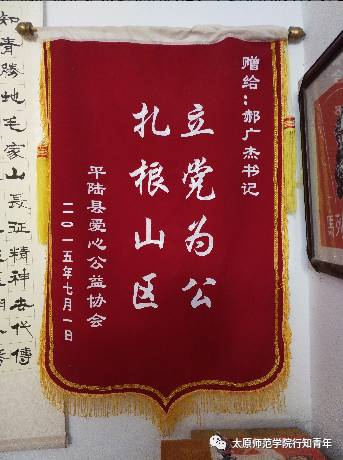 赠给：郝广杰书记
立党为公
扎根山区
平陆县爱心公益协会
二〇一五年七月一日
如青勝地毛家山
長征精神古代傳
太原师范学院行知青年